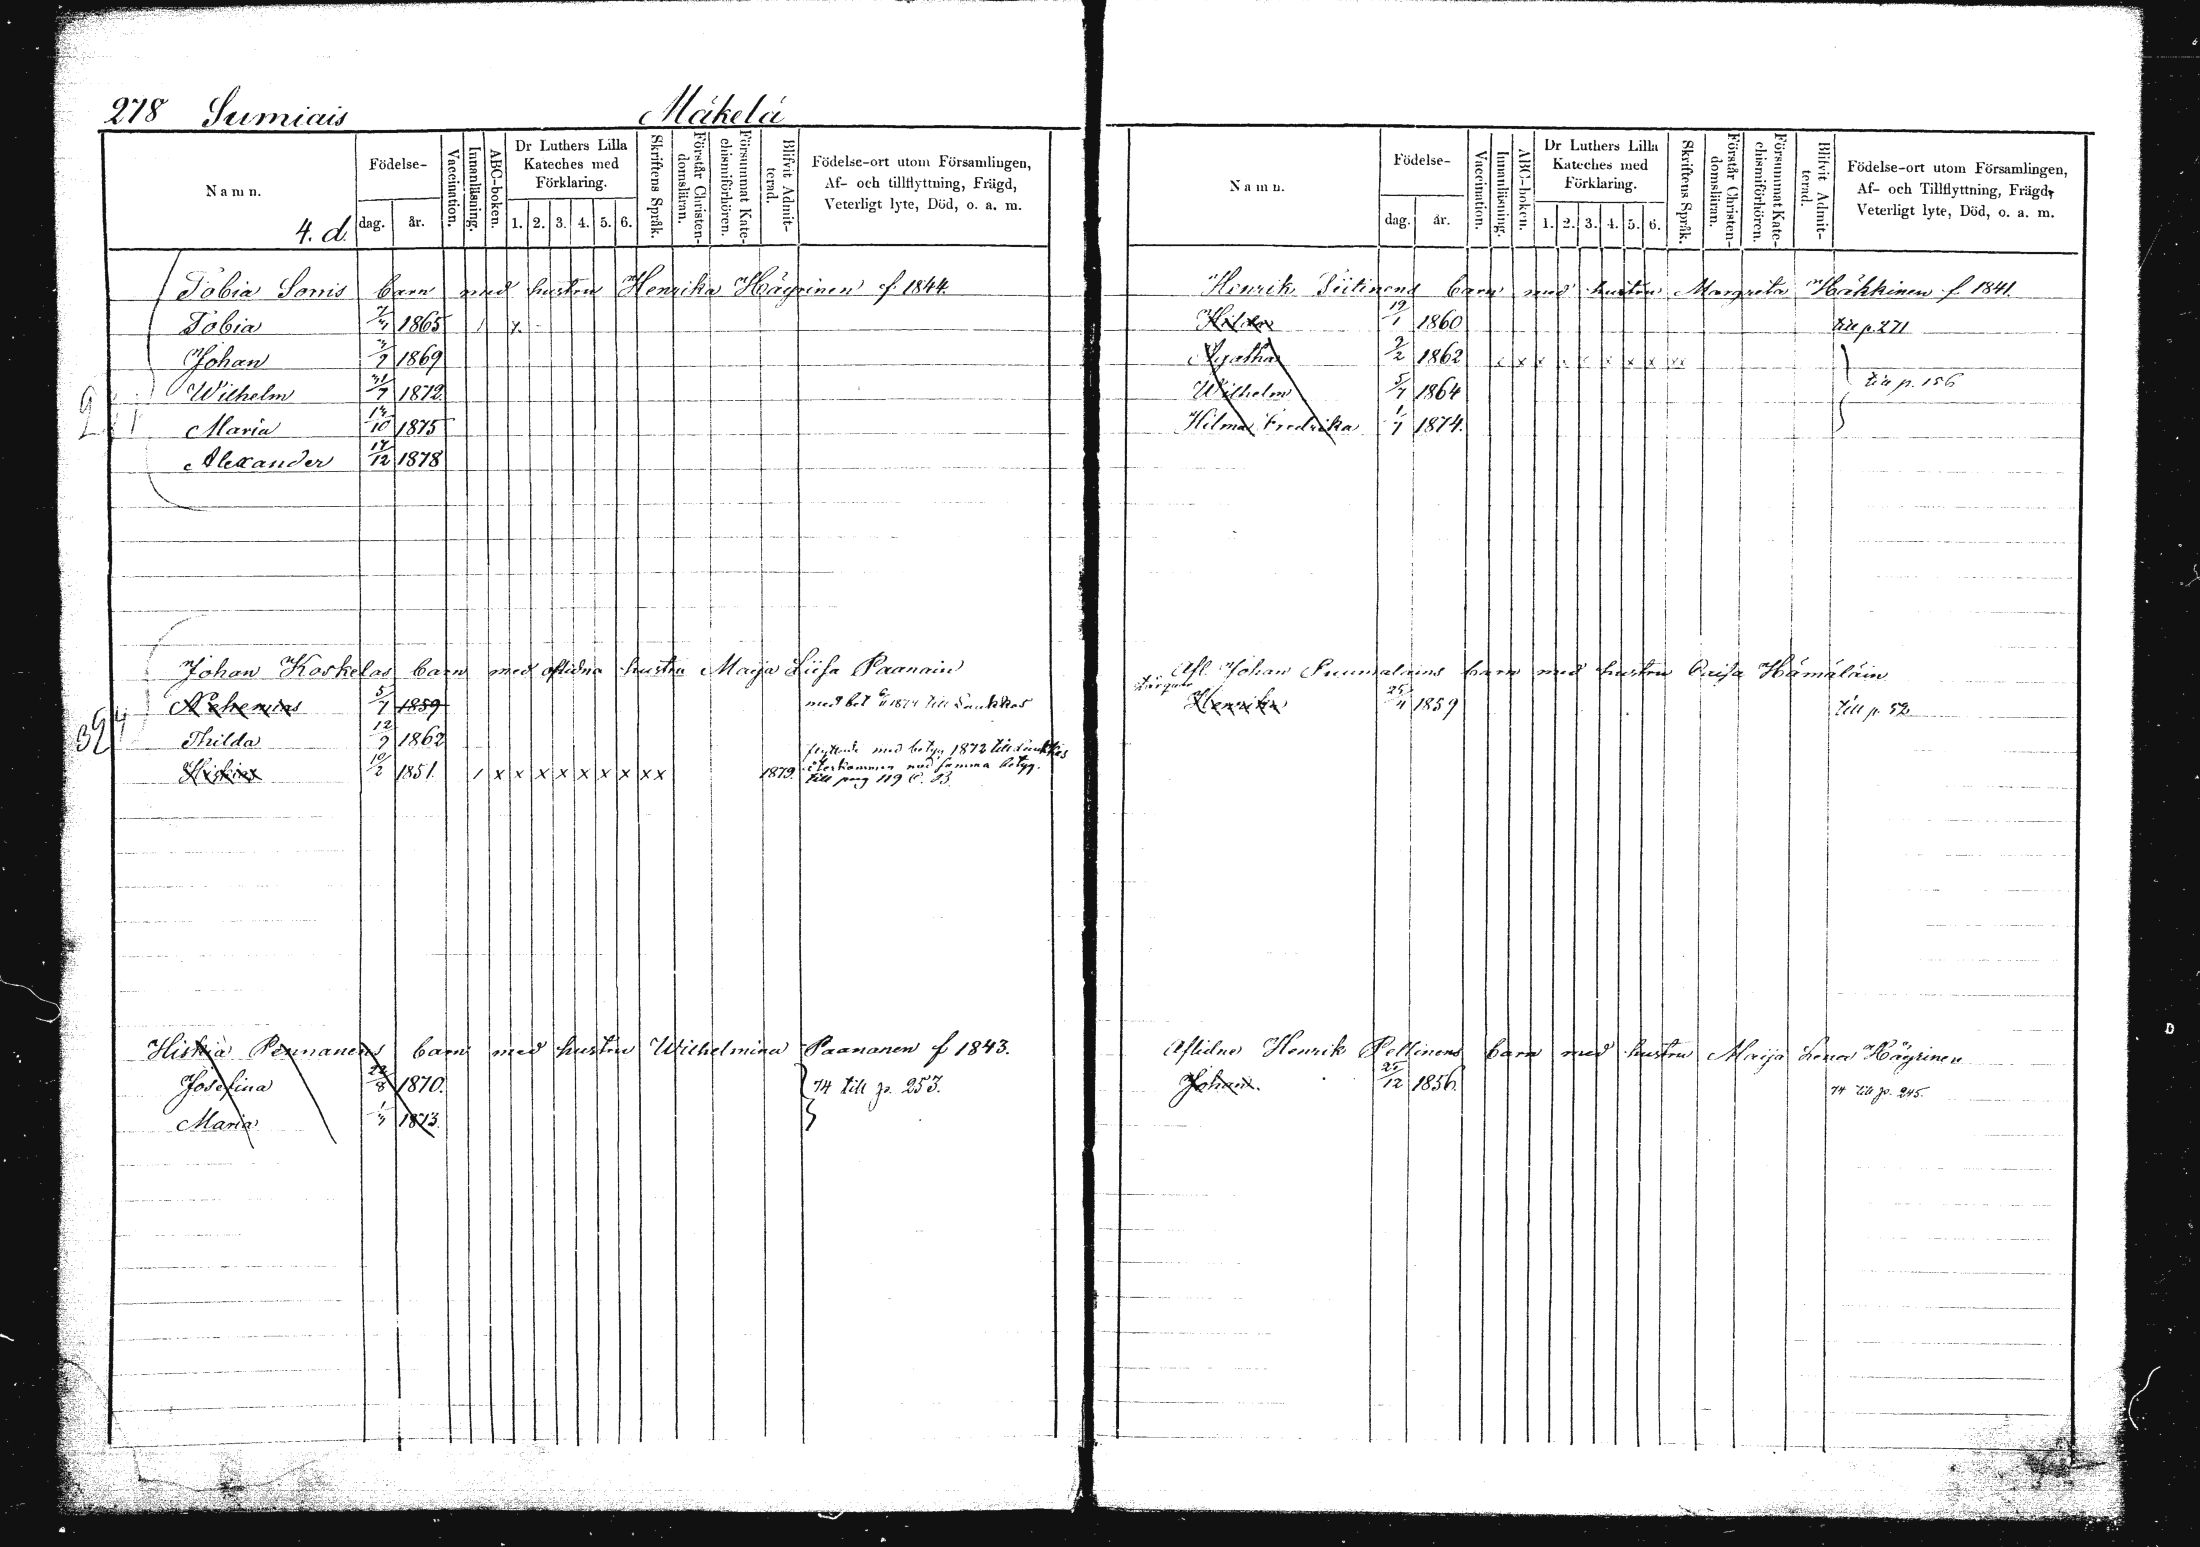 278 Sumiais Mäkelä
Namn.
4. d.
Födelse-
dag. år.
Vaccination.
Innanläsning.
ABC-boken.
Dr Luthers Lilla Kateches med Förklaring.
1. 2. 3. 4. 5. 6.
Skriftens Språk.
Förstår Christen-domsläran.
Försummat Kate-chismiförhören.
Blifvit Admit-terad.
Födelse-ort utom Församlingen, Af- och tillflyttning, Frägd, Veterligt lyte, Död, o. a. m.
Tobia Sorris barn med hustru Henrika Häyrinen f 1844.
Tobia 1865 / x
Johan 1869
Wilhelm 1872
Maria 14/10 1875
Alexander 17/12 1878
Johan Koskelas barn med aflidna hustru Maija Liisa Paanain
Nehemias 5/7 1859 med bet 1874 till Laukkas
Thilda 12/9 1862
Hiskias 10/2 1851. / x x x x x x x x x 1879.
flyttade med betyg 1872 till Laukkas
återkommen med samma betyg.
till pag 119 C. B.
Hiskia Pennanens barn med hustru Wilhelmina Paananen f 1843.
Josefina 22/8 1870. 74 till p. 253.
Maria 1873.
Namn.
Födelse-
dag. år.
Vaccination.
Innanläsning.
ABC-boken.
Dr Luthers Lilla Kateches med Förklaring.
1. 2. 3. 4. 5. 6.
Skriftens Språk.
Förstår Christen-domsläran.
Försummat Kate-chismiförhören.
Blifvit Admit-terad.
Födelse-ort utom Församlingen, Af- och Tillflyttning, Frägd, Veterligt lyte, Död, o. a. m.
Henrik Piitinens barn med hustru Margreta Häkkinen f. 1841.
Hilda 19/1 1860 till p. 271
Agatha 9/2 1862 x x x x x x x x x x
Wilhelm 1864 till p. 156
Hilma Fredrika 1/1 1874.
Afl. Johan Suomalains barn med hustru Caisa Hämäläin
Henrika 25/11 1859 till p. 52
Aflidne Henrik Pellinens barn med hustru Maija Lena Häyrinen
Johan. 25/12 1856 74 till p. 245.